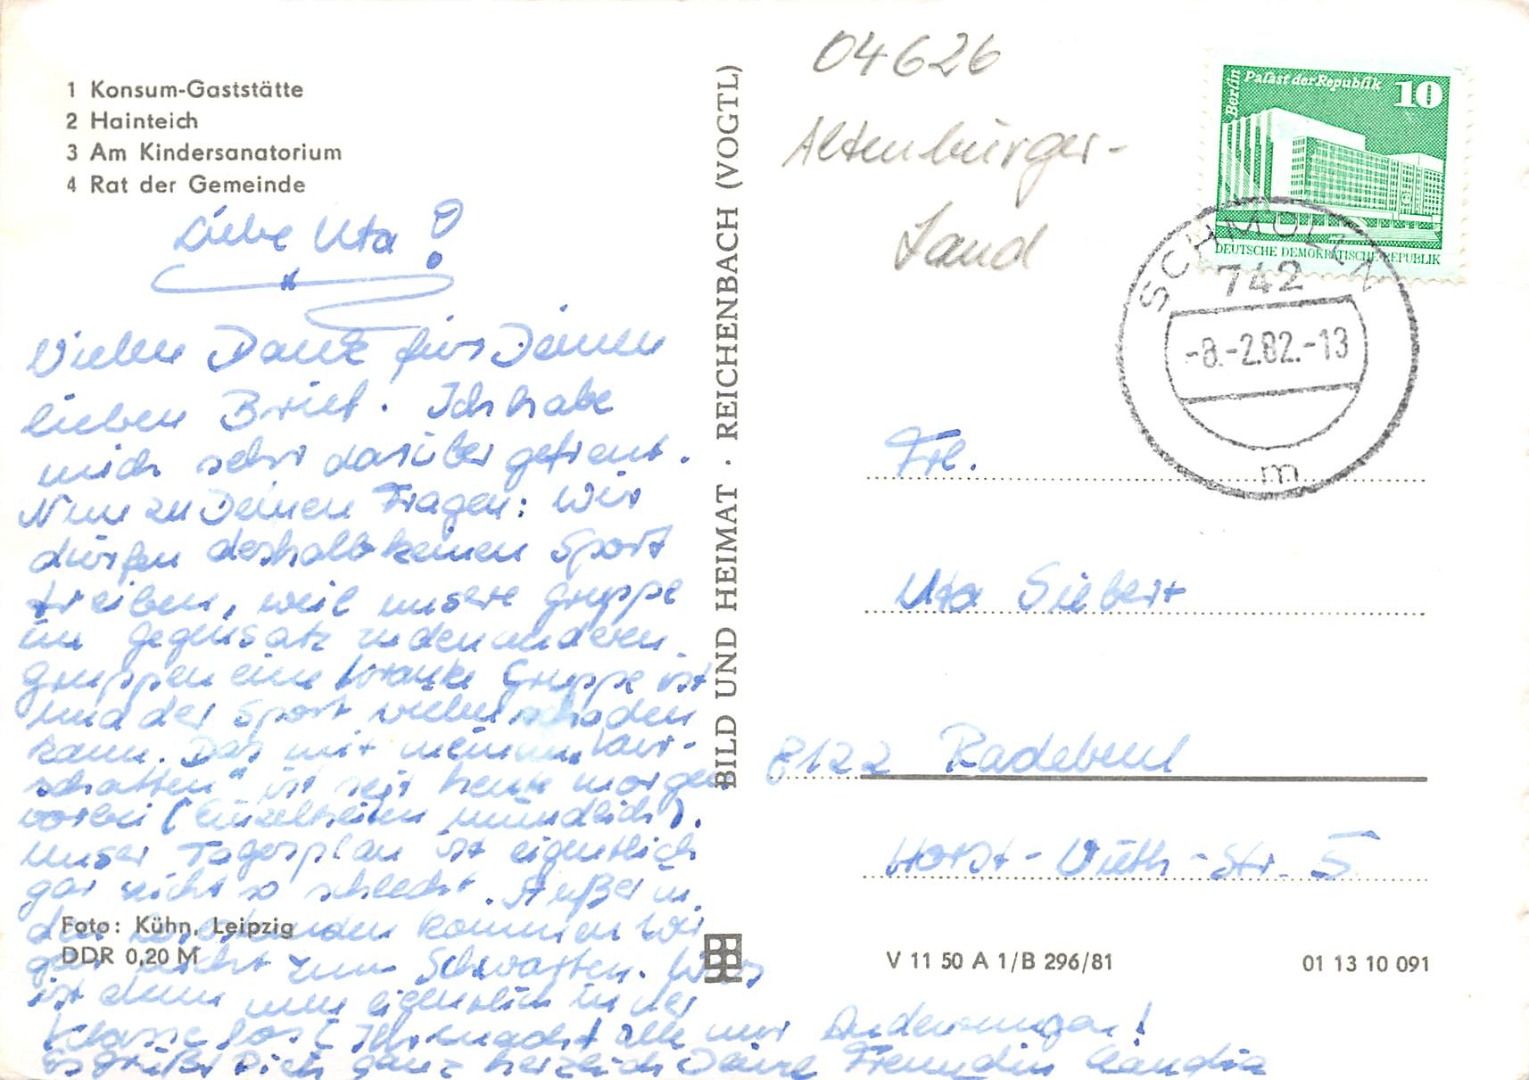 1 Konsum-Gaststätte
2 Hainteich
3 Am Kindersanatorium
4 Rat der Gemeinde
Liebe Uta!
Vielen Dank für Deinen
lieben Brief. Ich habe
mich sehr darüber gefreut.
Nun zu Deinen Fragen: Wir
dürfen deshalb keinen Sport
treiben, weil unsere Gruppe
im Gegensatz zu den anderen
Gruppen eine kranke Gruppe ist
und der Sport vielen schaden
kann. Das mit meinem
ist seit heute morgen
vorbei (Einzelheiten mündlich).
Unser Tagesplan ist eigentlich
gar nicht so schlecht. Außer in
den kommen wir
gar nicht zum Schwatzen. Was
ist denn nun eigentlich in der
Klasse los? Ihr macht alle nur Änderungen!
Es grüßt Dich ganz herzlich Deine Freundin Claudia
Foto: Kühn, Leipzig
DDR 0,20 M
BILD UND HEIMAT · REICHENBACH (VOGTL)
04626
Altenburger-
Land
Berlin Palast der Republik 10
DEUTSCHE DEMOKRATISCHE REPUBLIK
SCHMÖLLN
742
-8.-2.82.-13
m
Frl.
Uta Siebert
8122 Radebeul
Horst-Viedt-Str. 5
V 11 50 A 1/B 296/81
01 13 10 091